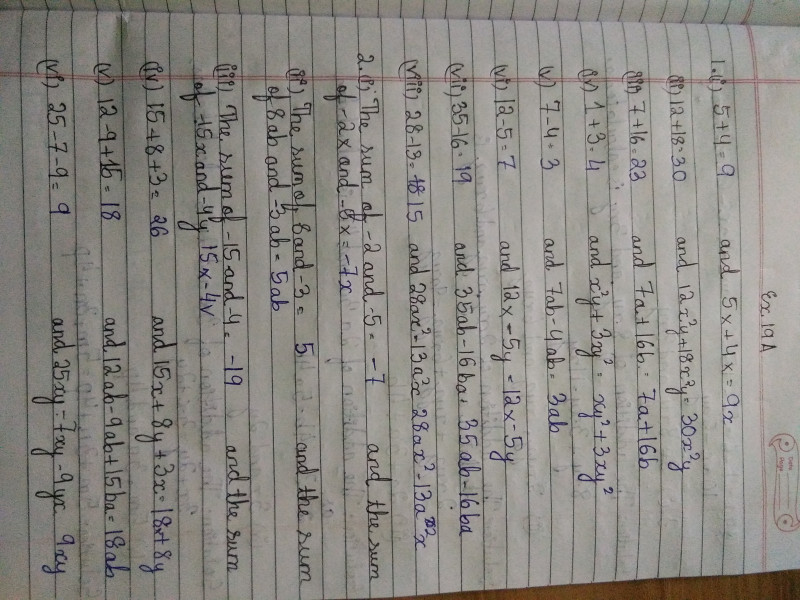 Ex.19A
1.(i) 5+4=9 and 5x+4x=9x
(ii) 12+18=30 and 12x²y+18x²y=30x²y
(iii) 7+16=23 and 7a+16b=7a+16b
(iv) 1+3=4 and x²y+3xy²= xy²+3xy²
(v) 7-4=3 and 7ab-4ab=3ab
(vi) 12-5=7 and 12x-5y=12x-5y
(vii) 35-16=19 and 35ab-16ba= 35ab-16ba
(viii) 28-13= 15 and 28ax²-13a²x 28ax²-13a²x
2.(i) The sum of -2 and -5= -7 and the sum
of -2x and -5x=-7x
(ii) The sum of 8 and -3= 5 and the sum
of 8ab and -3ab=5ab
(iii) The sum of -15 and -4= -19 and the sum
of -15x and -4y 15x-4v
(iv) 15+8+3= 26 and 15x+8y+3x=18x+8y
(v) 12-9+15=18 and 12ab-9ab+15ba=18ab
(vi) 25-7-9=9 and 25xy-7xy-9yx 9xy